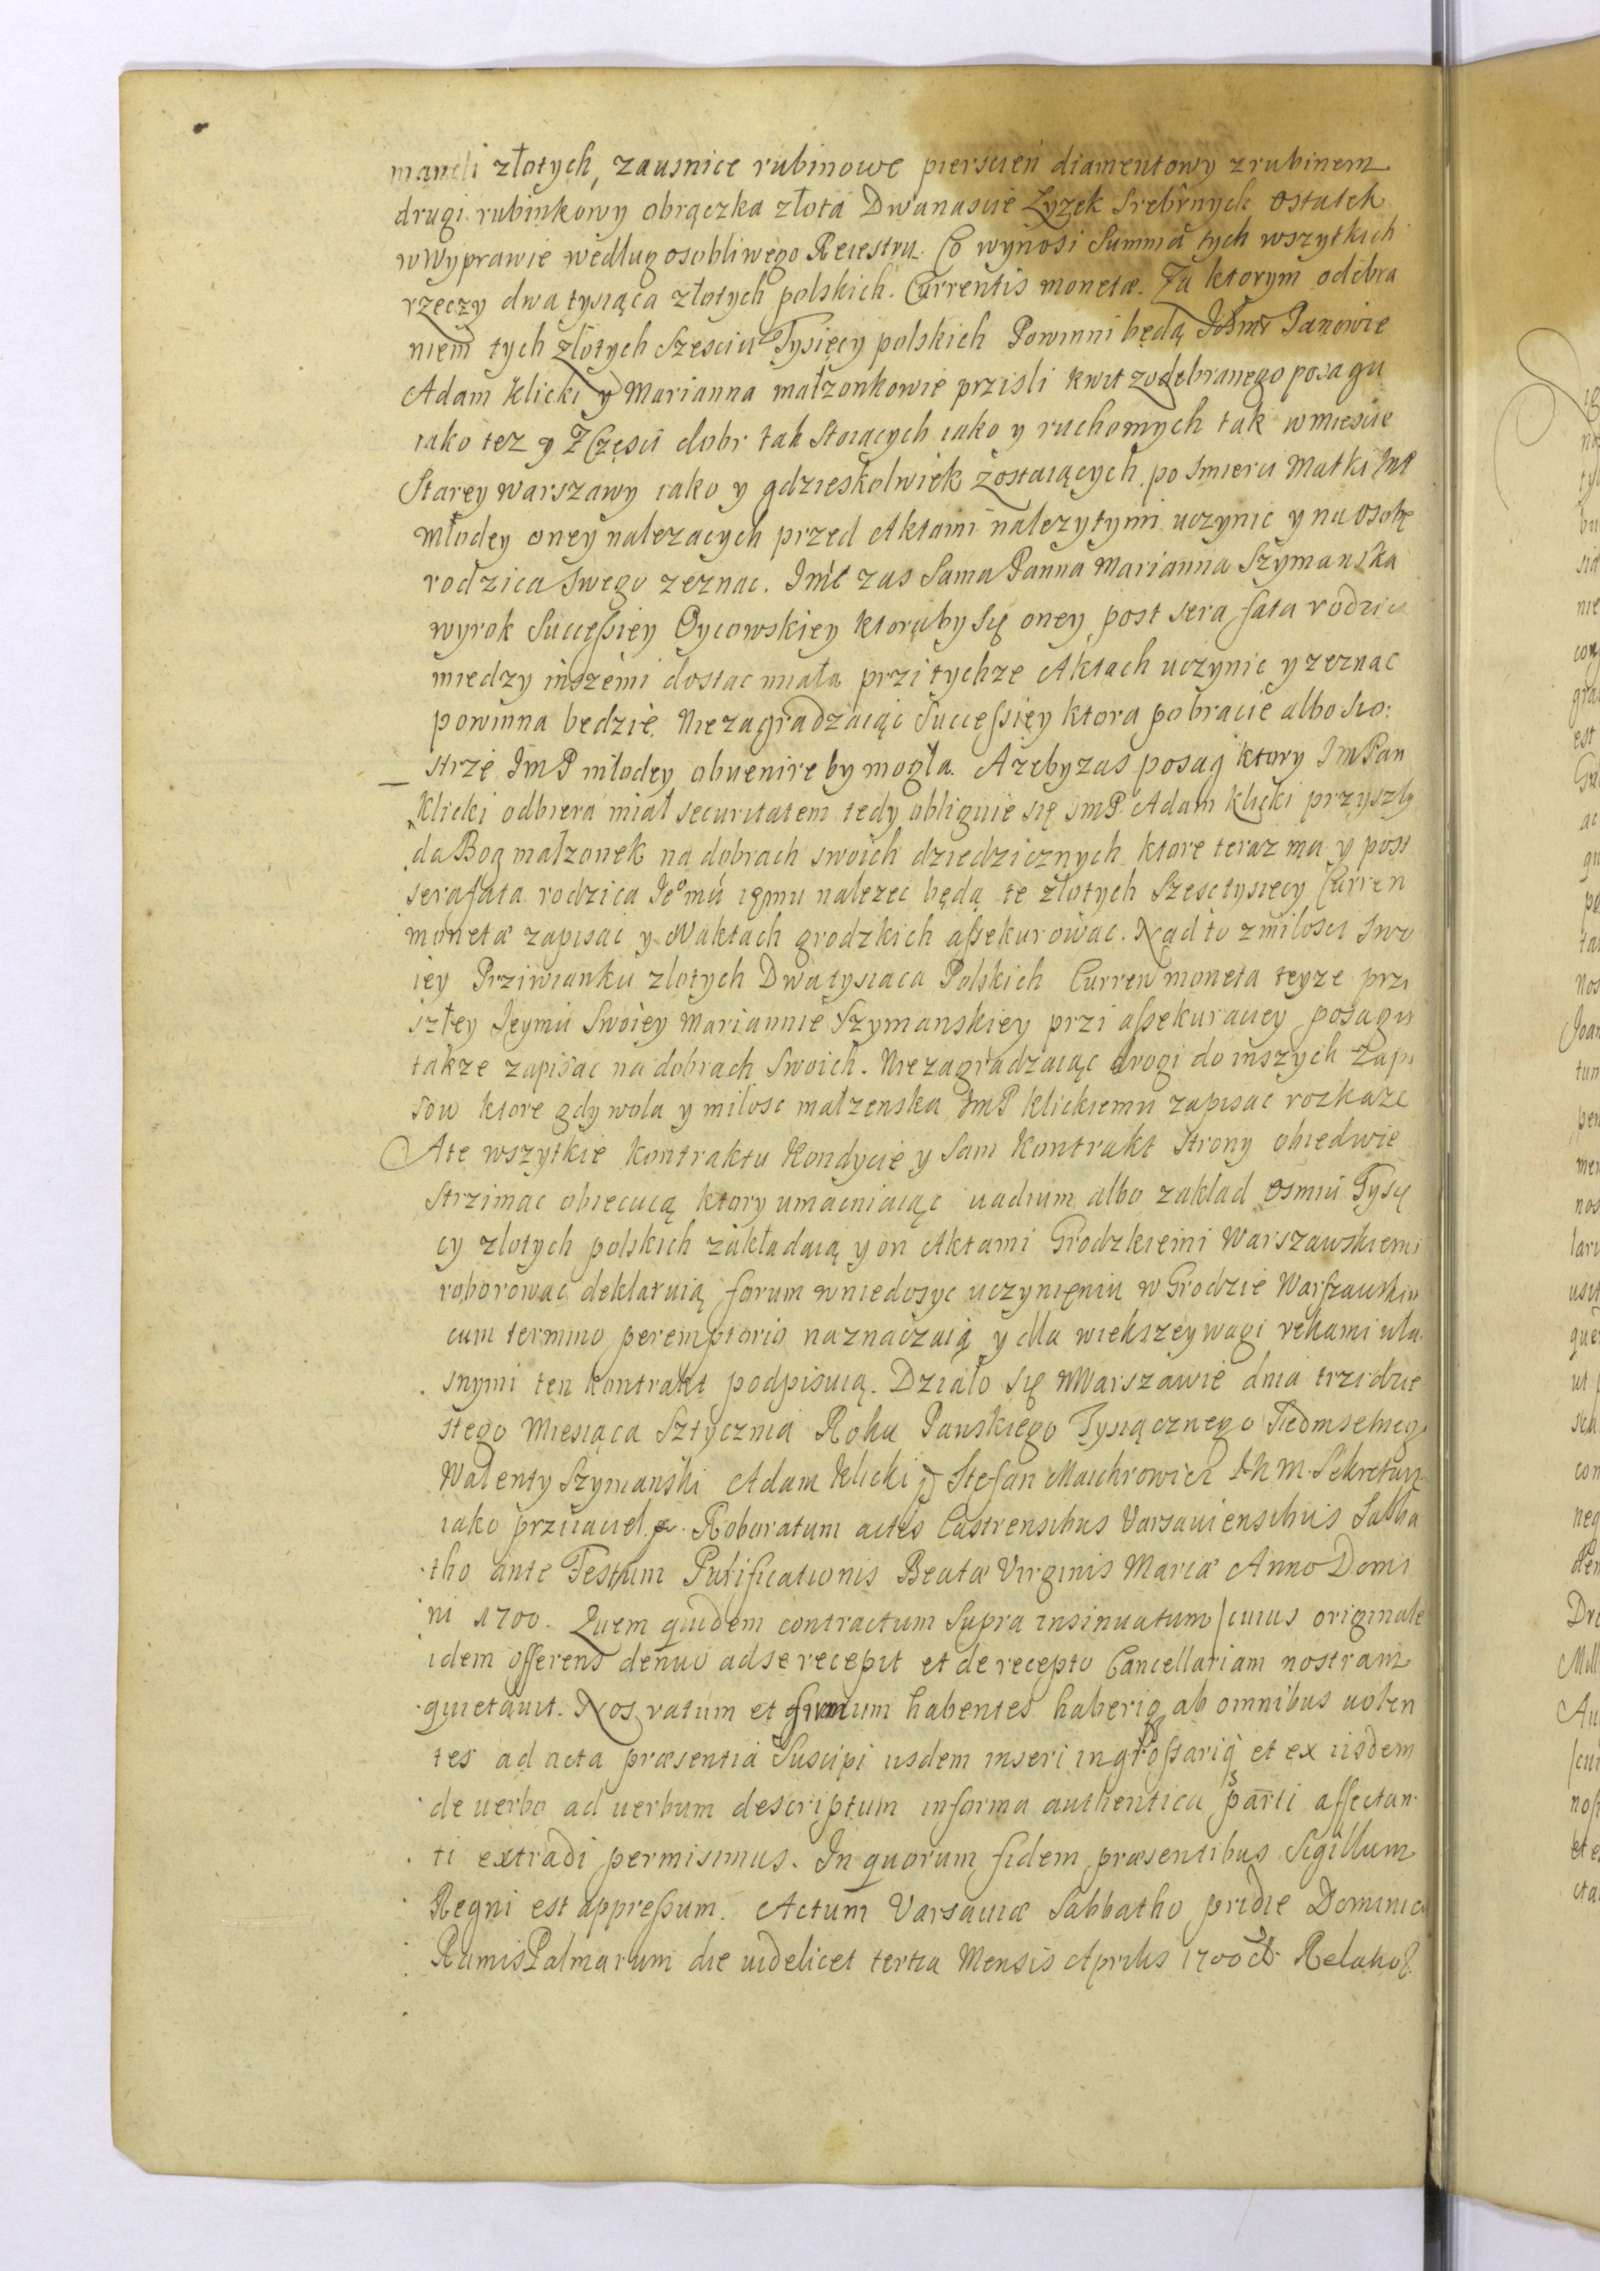 maneli złotych, zausnice rubinowe pierscień diamentowy z rubinem
drugi rubinkowy obrączka złota Dwanascie Lyzek Srebrnych ostatek
w Wyprawie według osobliwego Reiestru. Co wynosi Summa tych wszytkich
rzeczy dwa tysiąca złotych polskich. Currentis monetæ. Za ktorym odebra
niem tych złotych Szesciu Tysięcy polskich Powinni będą Ichmć Panowie
Adam Klicki y Marianna małzonkowie przisli kwit z odebranego posagu
iako tez y Z Częsci dobr tak Stoiących iako y ruchomych tak w miescie
Starey Warszawy iako y gdzieskolwiek zostaiących po smierci Matki ImP
młodey oney nalezacych przed Aktami nalezytymi uczynic y na osobę
rodzica swego zeznac. Imć zas Sama Panna Marianna Szymanska
wyrok Successiey Oycowskiey ktoraby Się oney post sera fata rodzica
miedzy inszemi dostac miała przi tychze Aktach uczynic y zeznac
powinna będzie. Niezagradzaiąc Successiey ktora po bracie albo sio:
strze ImP młodey obuenire by mogła. A zeby zas posag ktory Im Pan
Klicki odbiera miał securitatem tedy obliguie się ImP. Adam Klicki przyszły
da Bog małzonek na dobrach swoich dziedzicznych ktore teraz ma y post
sera fata rodzica Je⁰mci iemu nalezec będą te złotych Szesc tysięcy Curren
monetæ zapisac y W aktach grodzkich assekurowac. Nad to z milosci swo
iey Przywianku złotych Dwa tysiaca Polskich Curren moneta teyze przi
szłey Jeymci Swoiey Mariannie Szymanskiey przi assekuracyey posagu
takze zapisac na dobrach Swoich. Niezagradzaiąc drogi do inszych Zapi
sow ktore gdy wola y milosc małzenska ImP Klickiemu zapisac rozkaze
A te wszytkie Kontraktu Kondycie y Sam Kontrakt Strony obiedwie
Strzimac obiecuią ktory umacniaiąc uadium albo zakład osmiu Tysię
cy złotych polskich zakładaią y on Aktami Grodzkiemi Warszawskiemi
roborowac deklaruią forum w niedosyc uczynieniu w Grodzie Warszawskim
cum termino peremptorio naznaczaią y dla większey wagi rękami wła
snymi ten kontrakt podpisuią. Działo się w Warszawie dnia trzidzie
stego Miesiąca Stycznia Roku Panskiego Tysiącznego Siedmsetnego
Walenty Szymański Adam Klicki Stefan Maichrowicz JKM. Sekretarz
iako prziiaciel. Roboratum actis Castrensibus Varsauiensibus Sabba
tho ante Festum Purificationis Beatæ Virginis Mariæ Anno Domi
ni 1700. Quem quidem contractum Supra insinuatum cuius originale
idem offerens denuo ad se recepit et de recepto Cancellariam nostram
quietauit. Nos ratum et firmum habentes haberiq ab omnibus uolen
tes ad acta præsentia Suscipi iisdem inseri ingrossariq et ex iisdem
de uerbo ad uerbum descriptum in forma authentica parti affectan
ti extradi permisimus. In quorum fidem præsentibus Sigillum
Regni est appressum. Actum Varsauiæ Sabbatho pridie Dominicæ
Ramis Palmarum die uidelicet tertia Mensis Aprilis 1700